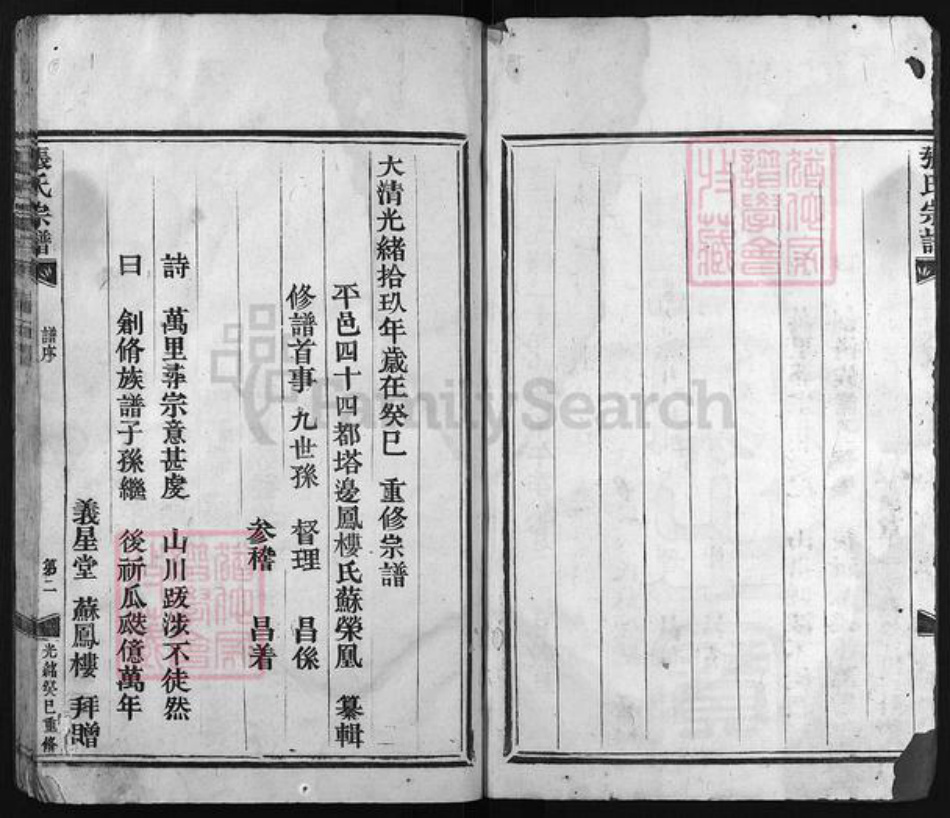 張氏宗譜
大清光緒拾玖年歲在癸巳 重修宗譜
平邑四十四都塔邊鳳樓氏蘇榮凰 纂輯
修譜首事九世孫 督理 昌係
参稽 昌着
詩 萬里尋宗意甚虔 山川跋涉不徒然
曰 創脩族譜子孫繼 後祈瓜瓞億萬年
義星堂 蘇鳳樓 拜贈
張氏宗譜
譜序
第二
光緒癸巳重脩
FamilySearch